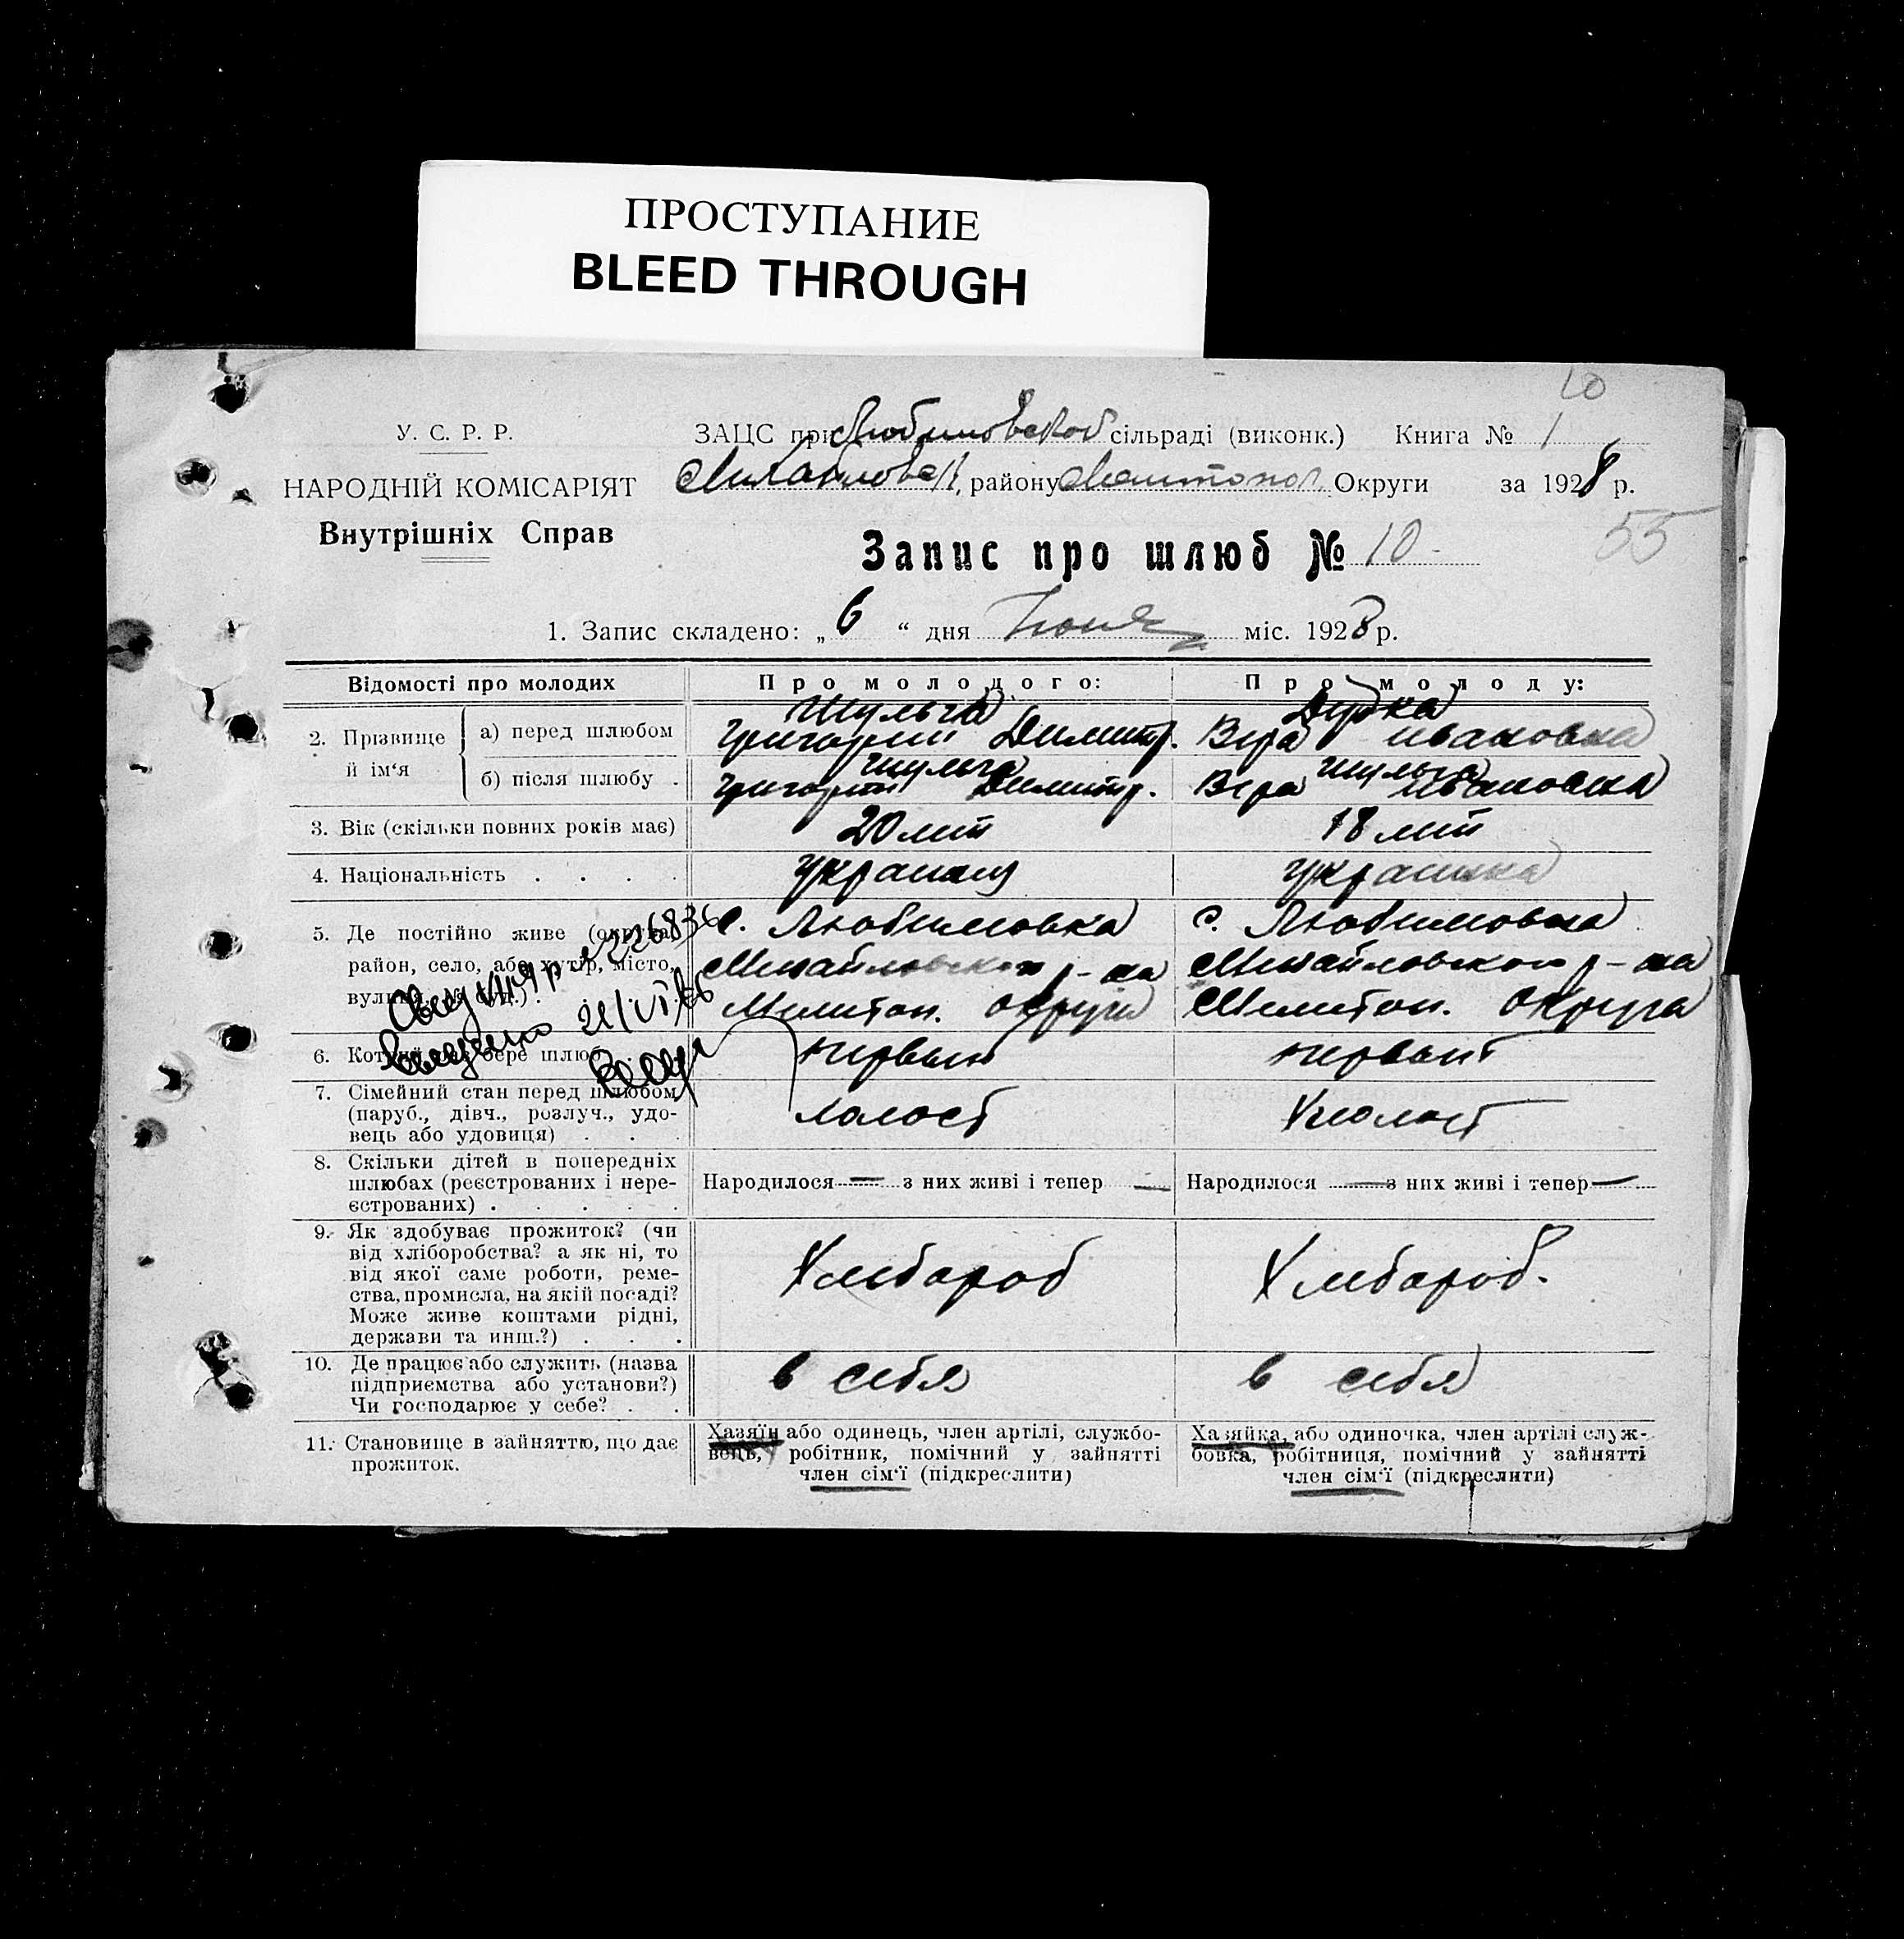 ПРОСТУПАНИЕ
BLEED THROUGH
10
У. С. Р. Р.
НАРОДНІЙ КОМІСАРІЯТ
Внутрішніх Справ
ЗАЦС при Любимовской сільраді (виконк.) Книга № 1
Михайловск. району Мелитопол. Округи за 1928 р.
55
Запис про шлюб № 10
1. Запис складено: „6“ дня Июня міс. 1928 р.
Відомості про молодих
Про молодого:
Про молоду:
2. Прізвище й ім‘я
а) перед шлюбом
Шульга
Григорий Димитр.
Вера Ивановна
б) після шлюбу
Шульга
Григорий Димитр.
Шульга
Вера Ивановна
3. Вік (скільки повних років має)
20 лет
18 лет
4. Національність . . . .
украинец
украинка
5. Де постійно живе (округа,
район, село, або хутір, місто,
вулиця, № буд.) .
с. Любимовка
Михайловского р-на
Мелитоп. округи
с. Любимовка
Михайловского р-на
Мелитоп. Округа
226836
21/VI
6. Котрий раз бере шлюб
первый
первый
7. Сімейний стан перед шлюбом
(паруб., дівч., розлуч., удо-
вець або удовиця) . . .
холост
8. Скільки дітей в попередніх
шлюбах (реєстрованих і нере-
єстрованих) . . . . .
Народилося — з них живі і тепер —
Народилося — з них живі і тепер —
9. Як здобуває прожиток? (чи
від хліборобства? а як ні, то
від якої саме роботи, реме-
ства, промисла, на якій посаді?
Може живе коштами рідні,
держави та инш.?) . . .
Хлебароб
Хлебароб.
10. Де працює або служить (назва
підприємства або установи?)
Чи господарює у себе? . .
в себя
в себя
11. Становище в зайняттю, що дає
прожиток.
Хазяїн або одинець, член артілі, службо-
вець, робітник, помічний у зайнятті
член сім‘ї (підкреслити)
Хазяйка, або одиночка, член артілі служ-
бовка, робітниця, помічний у зайнятті
член сім‘ї (підкреслити)